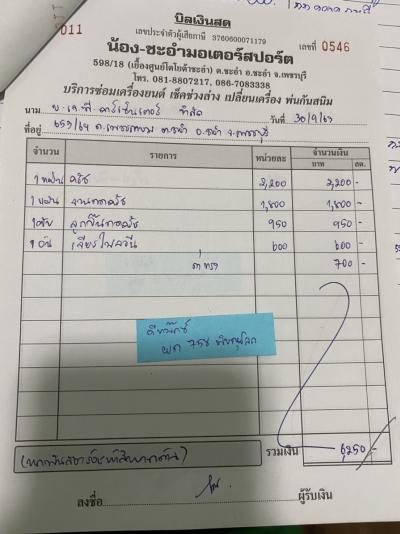 011
บิลเงินสด
เลขประจำตัวผู้เสียภาษี 3760600071179
น้อง-ชะอำมอเตอร์สปอร์ต
เลขที่ 0546
598/18 (เยื้องศูนย์โตโยต้าชะอำ) ต.ชะอำ อ.ชะอำ จ.เพชรบุรี
โทร. 081-8807217, 086-7083338
บริการซ่อมเครื่องยนต์ เช็คช่วงล่าง เปลี่ยนเครื่อง พ่นกันสนิม
นาม จำกัด วันที่ 30/9/63
ที่อยู่ 659/64 ถ.เพชรเกษม ต.ชะอำ อ.ชะอำ จ.เพชรบุรี
จำนวน รายการ หน่วยละ จำนวนเงิน
บาท สต.
1 แผ่น ครัช 2,200 2,200 -
1 แผ่น จานกดครัช 1,800 1,800 -
1 ตลับ ลูกปืนกดครัช 950 950 -
1 อัน เจียรไฟลวีล 600 600 -
ค่าแรง 700 -
รวมเงิน 6,250 -
ลงชื่อ ผู้รับเงิน